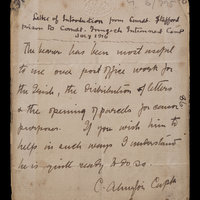 Letter of Introduction from Comdt. Stafford
prison to Comdt. Frongoch Internment Camp
July 1916
The bearer has been most useful
to me over post office work for
the Irish, the distribution of letters
& the opening of parcels for censor
purposes. If you wish him to
help in such ways I understand
he is quite ready to do so.
C. Capt